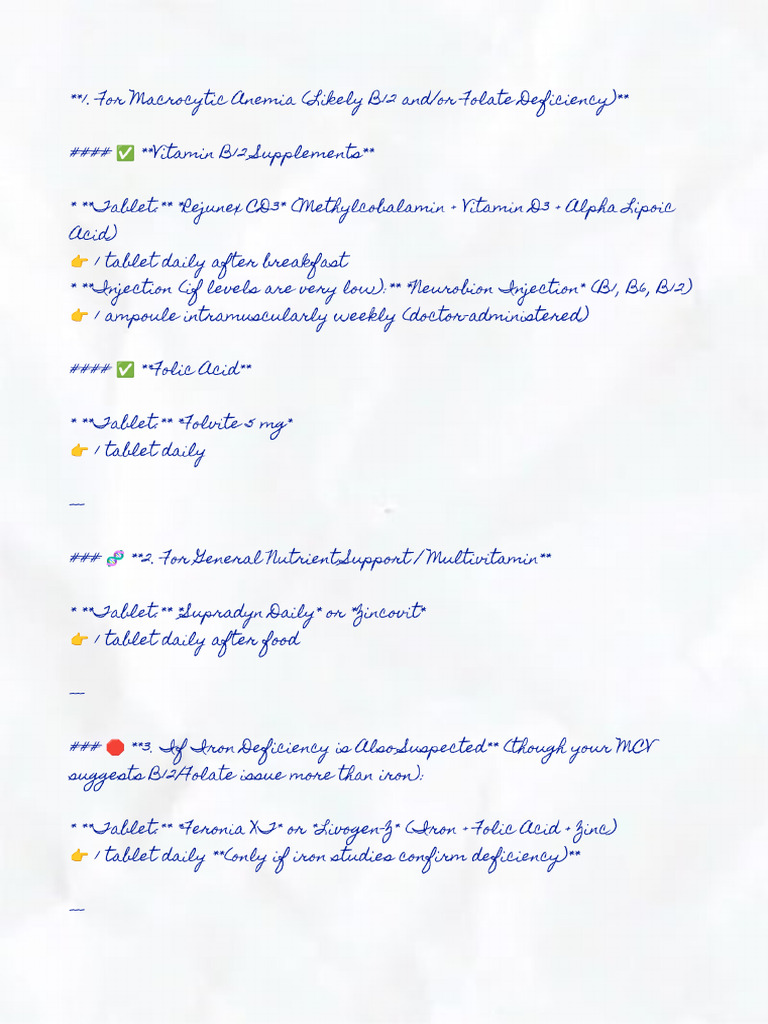 **1. For Macrocytic Anemia (Likely B12 and/or Folate Deficiency)**
#### ✅ **Vitamin B12 Supplements**
* **Tablet:** *Rejunex CD3* (Methylcobalamin + Vitamin D3 + Alpha Lipoic
Acid)
👉 1 tablet daily after breakfast
* **Injection (if levels are very low):** *Neurobion Injection* (B1, B6, B12)
👉 1 ampoule intramuscularly weekly (doctor-administered)
#### ✅ **Folic Acid**
* **Tablet:** *Folvite 5 mg*
👉 1 tablet daily
---
### 🧬 **2. For General Nutrient Support / Multivitamin**
* **Tablet:** *Supradyn Daily* or *Zincovit*
👉 1 tablet daily after food
---
### 🛑 **3. If Iron Deficiency is Also Suspected** (though your MCV
suggests B12/Folate issue more than iron):
* **Tablet:** *Feronia XT* or *Livogen-Z* (Iron + Folic Acid + Zinc)
👉 1 tablet daily **(only if iron studies confirm deficiency)**
---